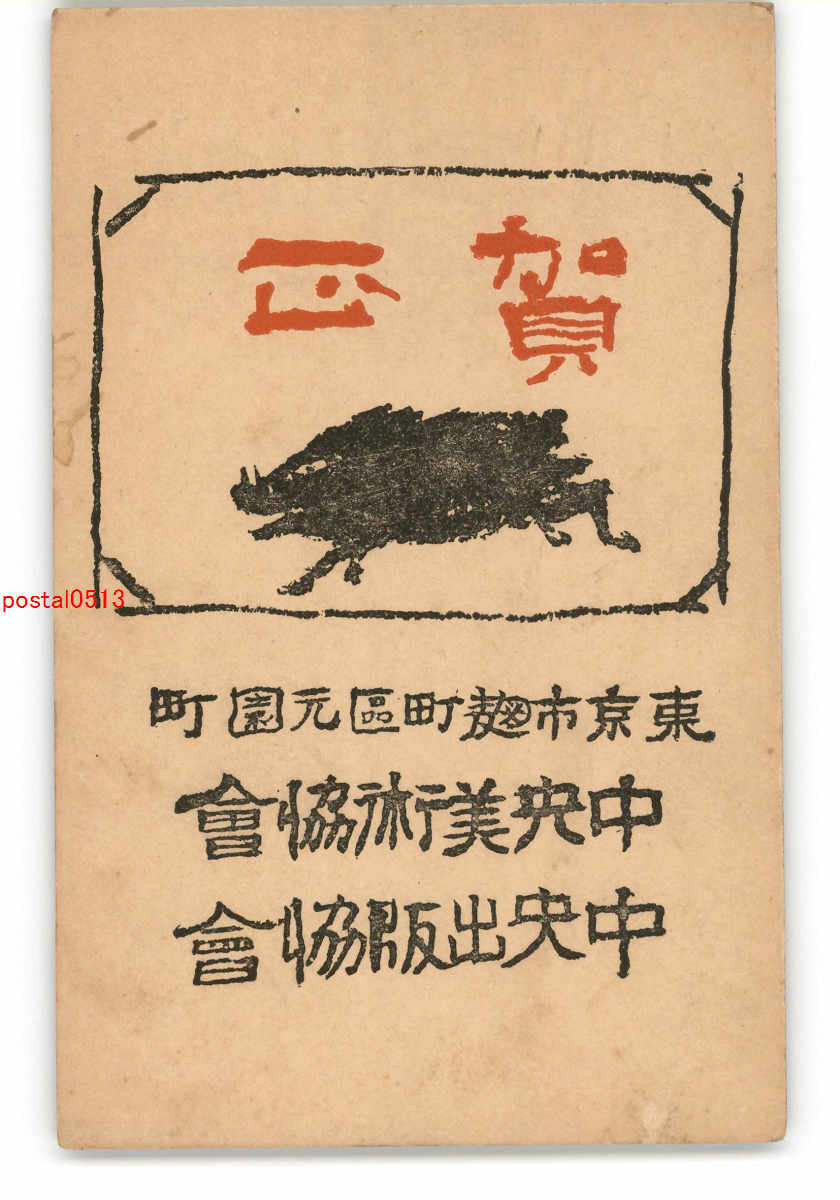 賀正
東京市麹町區元園町
中央美術協會
中央出版協會
postal0513